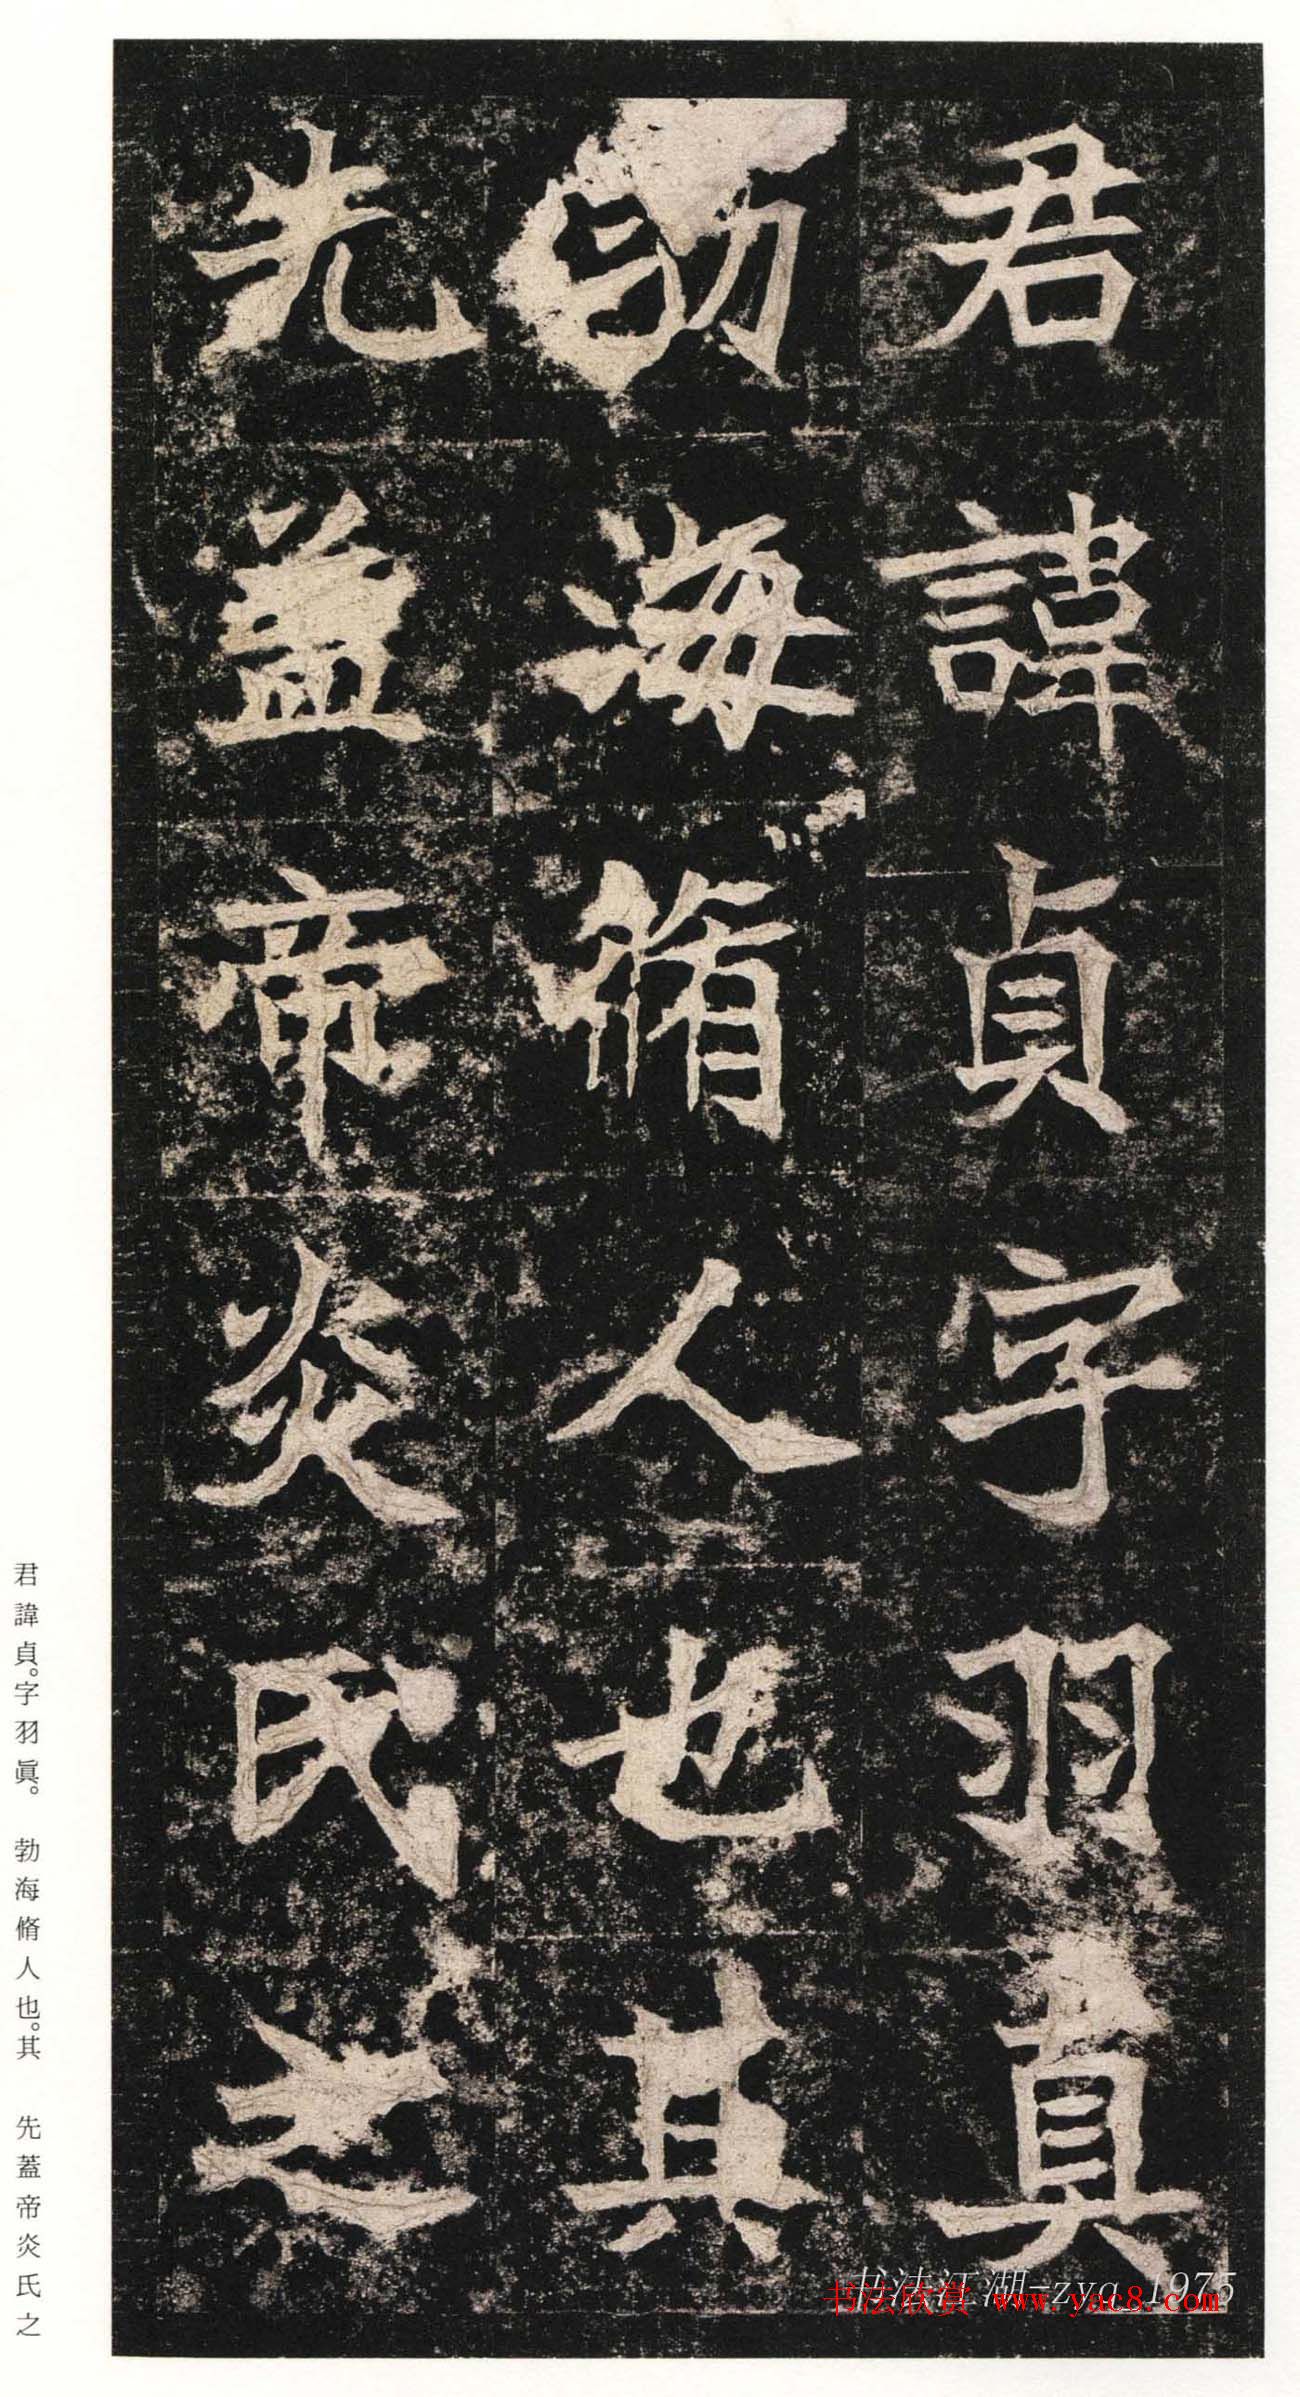 君諱貞字羽真
勃海脩人也其
先蓋帝炎氏之
君諱貞。字羽眞。　勃海脩人也。其　先蓋帝炎氏之
书法江湖-zya_1975
书法欣赏 www.yac8.com